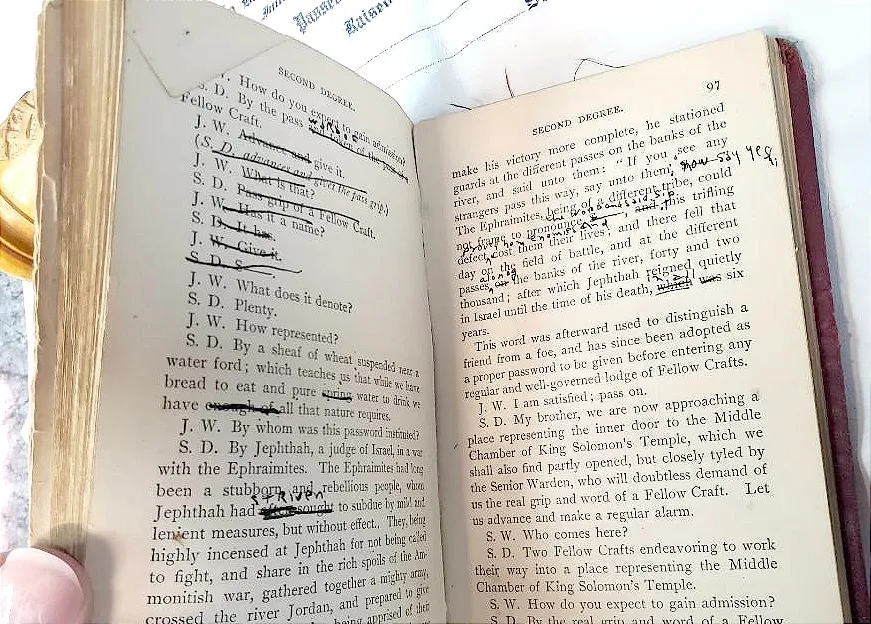 Passed
Raised
SECOND DEGREE.
How do you expect to gain admission?
S. D. By the pass and token of the pass
Fellow Craft.
J. W. Advance and give it.
(S. D. advances and gives the pass grip.)
J. W. What is that?
S. D. Pass grip of a Fellow Craft.
J. W. Has it a name?
S. D. It has.
J. W. Give it.
S. D. S
J. W. What does it denote?
S. D. Plenty.
J. W. How represented?
S. D. By a sheaf of wheat suspended near a
water ford; which teaches us that while we have
bread to eat and pure spring water to drink we
have enough of all that nature requires.
J. W. By whom was this password instituted?
S. D. By Jephthah, a judge of Israel, in a war
with the Ephraimites. The Ephraimites had long
been a stubborn and rebellious people, whom
STRIVEN
Jephthah had after sought to subdue by mild and
lenient measures, but without effect. They, being
highly incensed at Jephthah for not being called
to fight, and share in the rich spoils of the Am-
monitish war, gathered together a mighty army,
crossed the river Jordan, and prepared to give
being apprised of their
97
SECOND DEGREE.
make his victory more complete, he stationed
guards at the different passes on the banks of the
river, and said unto them: "If you see any
strangers pass this way, say unto them, now say yes,
The Ephraimites, being of a different tribe, could
no frame to pronounce and this trifling
defect cost them their lives; and there fell that
day on the field of battle, and at the different
along
passes on the banks of the river, forty and two
thousand; after which Jephthah reigned quietly
in Israel until the time of his death, which was six
years.
This word was afterward used to distinguish a
friend from a foe, and has since been adopted as
a proper password to be given before entering any
regular and well-governed lodge of Fellow Crafts.
J. W. I am satisfied; pass on.
S. D. My brother, we are now approaching a
place representing the inner door to the Middle
Chamber of King Solomon's Temple, which we
shall also find partly opened, but closely tyled by
the Senior Warden, who will doubtless demand of
us the real grip and word of a Fellow Craft. Let
us advance and make a regular alarm.
S. W. Who comes here?
S. D. Two Fellow Crafts endeavoring to work
their way into a place representing the Middle
Chamber of King Solomon's Temple.
S. W. How do you expect to gain admission?
S. D. By the real grip and word of a Fellow